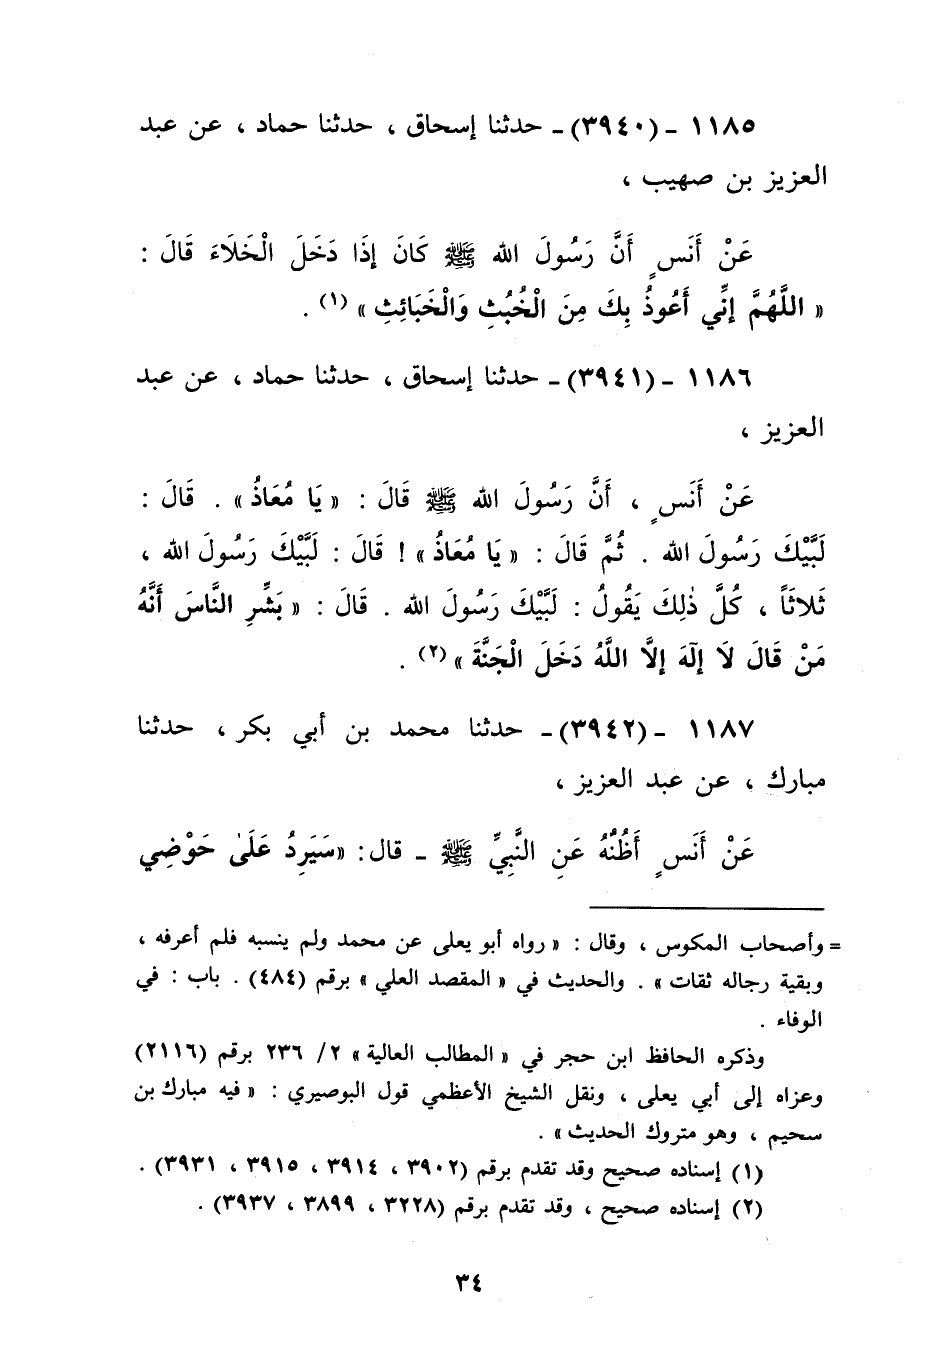 ١١٨٥ - (٣٩٤٠) - حدثنا إسحاق ، حدثنا حماد ، عن عبد
العزيز بن صهيب ،
عَنْ أَنَسٍ أَنَّ رَسُولَ الله ﷺ كَانَ إِذَا دَخَلَ الْخَلَاءَ قَالَ :
« اللَّهُمَّ إِنِّي أَعُوذُ بِكَ مِنَ الْخُبُثِ وَالْخَبَائِثِ » (١) .
١١٨٦ - (٣٩٤١) - حدثنا إسحاق ، حدثنا حماد ، عن عبد
العزيز ،
عَنْ أَنَسٍ ، أَنَّ رَسُولَ الله ﷺ قَالَ : « يَا مُعَاذُ » . قَالَ :
لَبَّيْكَ رَسُولَ الله . ثُمَّ قَالَ : « يَا مُعَاذُ » ! قَالَ : لَبَّيْكَ رَسُولَ الله ،
ثَلاثَاً ، كُلَّ ذٰلِكَ يَقُولُ : لَبَّيْكَ رَسُولَ الله . قَالَ : « بَشِّرِ النَّاسَ أَنَّهُ
مَنْ قَالَ لَا إِلٰهَ إِلَّا اللَّهُ دَخَلَ الْجَنَّةَ » (٢) .
١١٨٧ - (٣٩٤٢) - حدثنا محمد بن أبي بكر ، حدثنا
مبارك ، عن عبد العزيز ،
عَنْ أَنَسٍ أَظُنُّهُ عَنِ النَّبِيِّ ﷺ - قال: «سَيَرِدُ عَلَىٰ حَوْضِي
= وأصحاب المكوس ، وقال : « رواه أبو يعلى عن محمد ولم ينسبه فلم أعرفه ،
وبقية رجاله ثقات » . والحديث في « المقصد العلي » برقم (٤٨٤) . باب : في
الوفاء .
وذكره الحافظ ابن حجر في « المطالب العالية » ٢/ ٢٣٦ برقم (٢١١٦)
وعزاه إلى أبي يعلى ، ونقل الشيخ الأعظمي قول البوصيري : « فيه مبارك بن
سحيم ، وهو متروك الحديث » .
(١) إسناده صحيح وقد تقدم برقم (٣٩٠٢ ، ٣٩١٤ ، ٣٩١٥ ، ٣٩٣١) .
(٢) إسناده صحيح ، وقد تقدم برقم (٣٢٢٨ ، ٣٨٩٩ ، ٣٩٣٧) .
٣٤